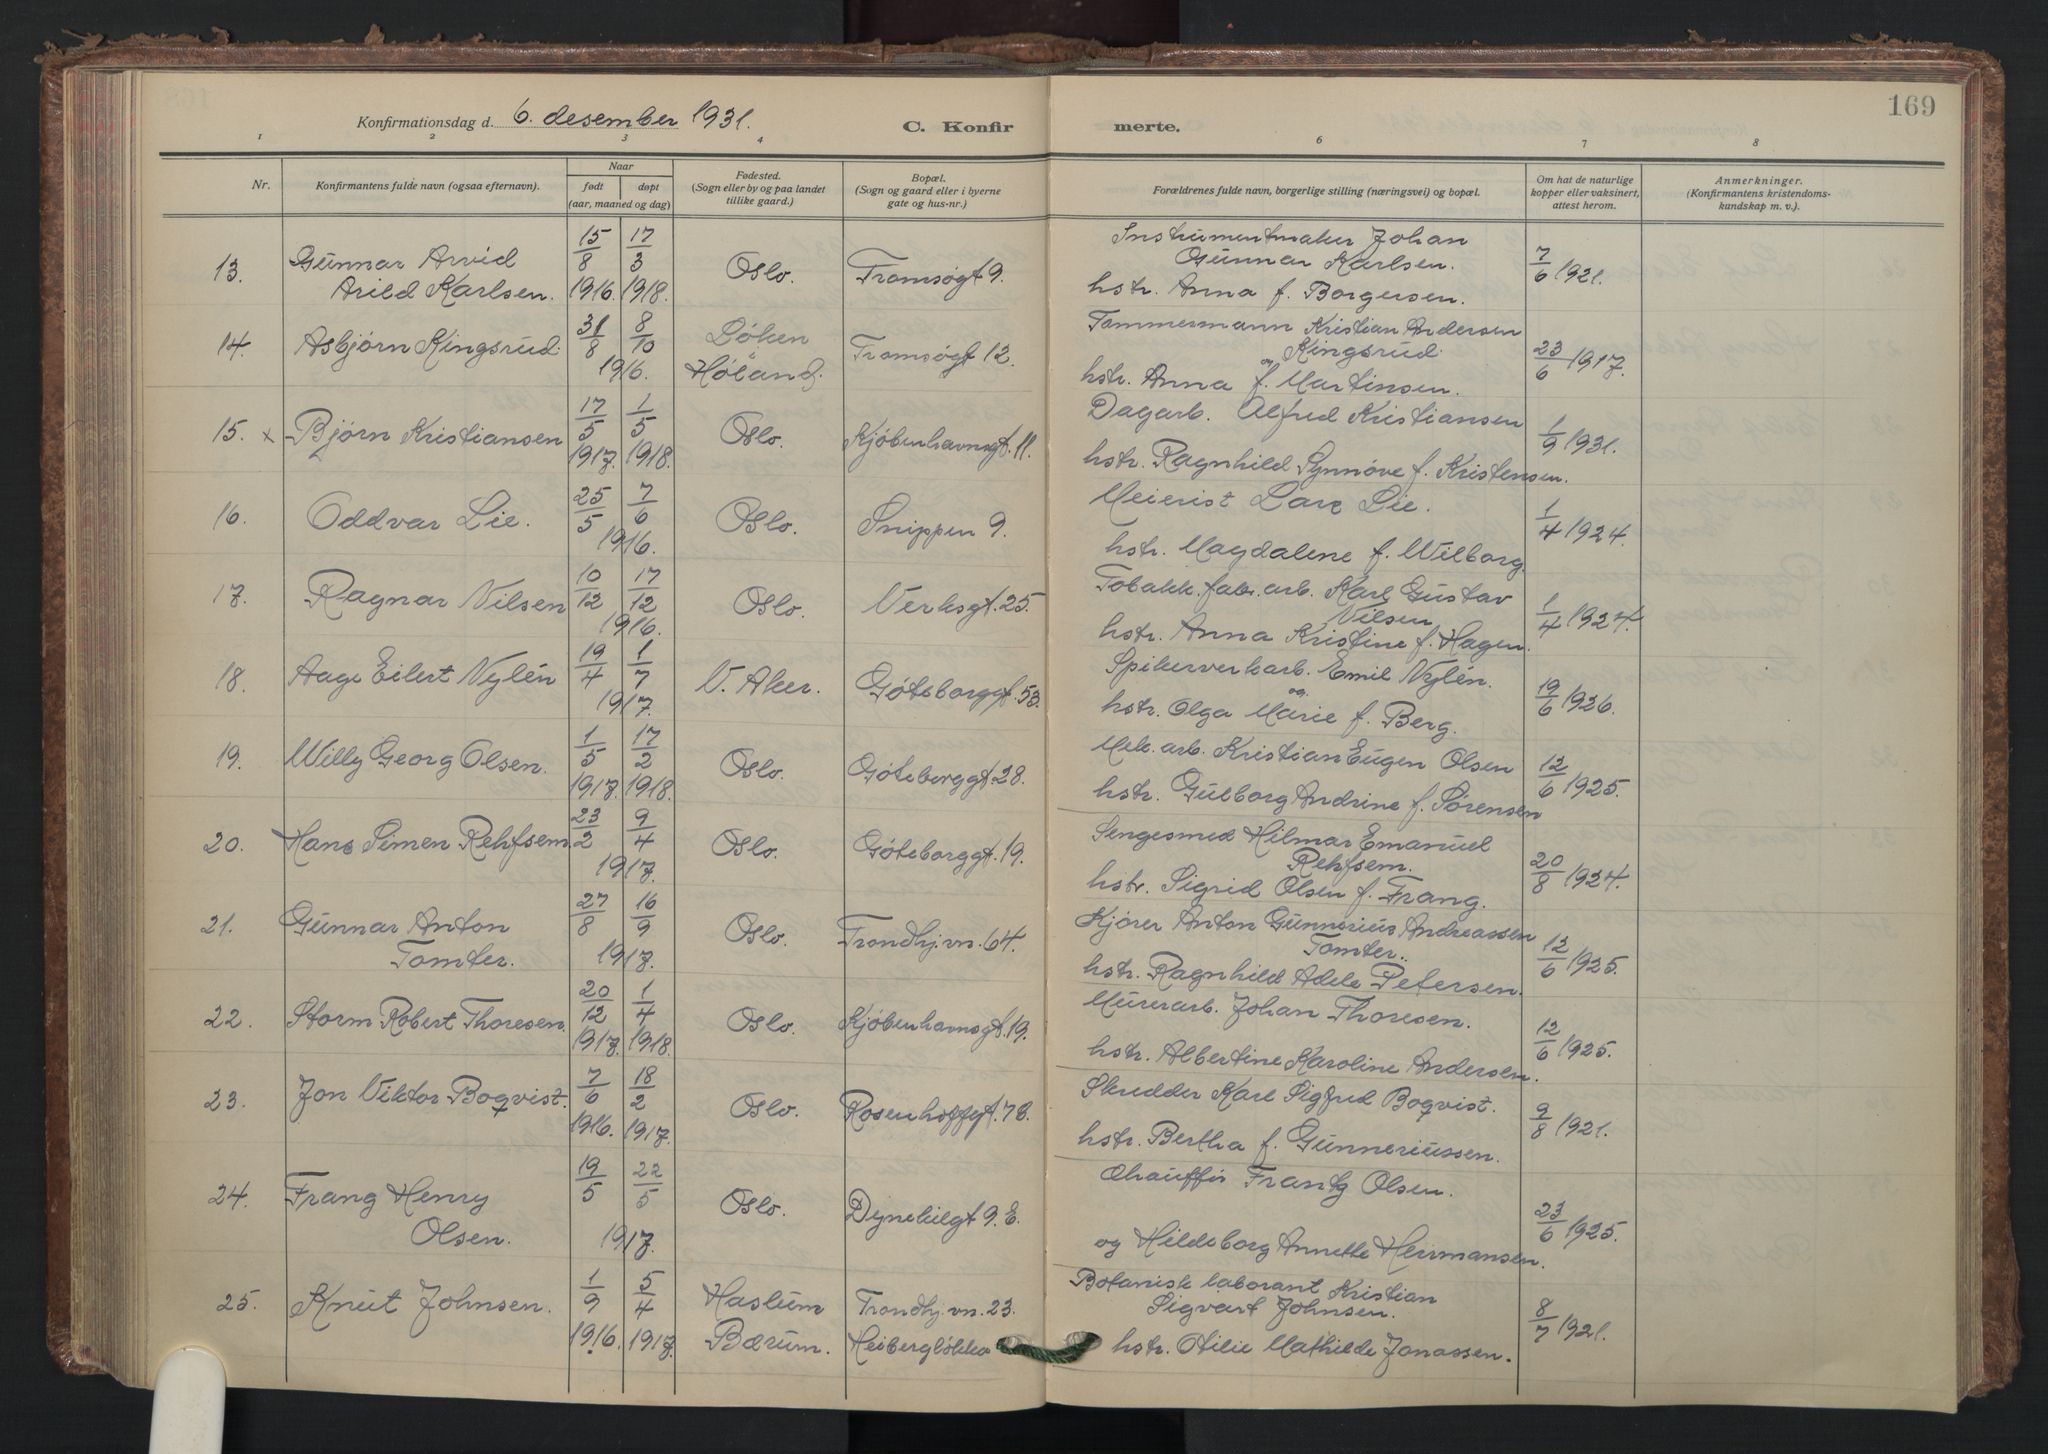 169
Konfirmationsdag d. 6. desember 1931.
C. Konfirmerte.
1 2 3 4 6 7 8
Nr.
Konfirmantens fulde navn (ogsaa efternavn).
Naar
født døpt
(aar, maaned og dag)
Fødested.
(Sogn eller by og paa landet
tillike gaard.)
Bopæl.
(Sogn og gaard eller i byerne
gate og hus-nr.)
Forældrenes fulde navn, borgerlige stilling (næringsvei) og bopæl.
Om hat de naturlige
kopper eller vaksinert,
attest herom.
Anmerkninger.
(Konfirmantens kristendoms-
kundskap m. v.).
13. Gunnar Arvid
Arild Karlsen. 15/8 1916. 17/3 1918. Oslo. Tromsøgt 9.
Instrumentmaker Johan
Gunnar Karlsen.
hstr. Anna f. Borgersen. 7/6 1921.
14. Asbjørn Kingsrud. 31/8 8/10 1916. Løken
Høland. Tromsøgt 12.
Tømmermann Kristian Andersen
Kingsrud
hstr. Anna og f. Martinsen. 23/6 1917.
15. x Bjørn Kristiansen 17/5 1917. 1/5 1918. Oslo. Kjøbenhavnsgt. 11.
Dagarb. Alfred Kristiansen
hstr. Ragnhild Synnøve f. Kristensen. 1/9 1931.
16. Oddvar Lie. 25/5 7/6 1916. Oslo. Snippen 9.
Meierist Lars Lie.
hstr. Magdalene f. Wilborg. 1/4 1924.
17. Ragnar Nilsen 10/12 17/12 1916. Oslo. Verksgt. 25.
Tobakk. fabr. arb. Karl Gustav
Nilsen
hstr. Anna Kristine f. Hagen. 1/4 1924.
18. Aage Eilert Nylén 19/4 1/7 1917. V. Aker. Gøteborggt. 53.
Spikerverkarb. Emil Nylén.
hstr. Olga Marie og f. Berg. 19/6 1926.
19. Willy Georg Olsen. 1/5 1917. 17/2 1918. Oslo. Gøteborggt. 28.
Mek. arb. Kristian Eugen Olsen
hstr. Gulborg Andrine f. Sørensen 12/6 1925.
20. Hans Simen Rehfsem 23/2 9/4 1917. Oslo. Gøteborggt. 19.
Sengesmed Hilmar Emanuel
Rehfsem.
hstr. Sigrid Olsen f. Frang. 20/8 1924.
21. Gunnar Anton
Tomter. 27/8 16/9 1917. Oslo. Trondhj.vn. 64.
Kjører Anton Gunnerius Andreassen
Tomter.
hstr. Ragnhild Adele Petersen. 12/6 1925.
22. Storm Robert Thoresen. 20/12 1917. 1/4 1918. Oslo. Kjøbenhavnsgt. 19.
Murerarb. Johan Thoresen.
hstr. Albertine Karoline Andersen. 12/6 1925.
23. Jon Viktor Boqvist. 7/6 1916. 18/2 1917. Oslo. Rosenhoffgt. 7B.
Skredder Karl Sigfred Boqvist.
hstr. Bertha f. Gunneriussen. 9/8 1921.
24. Frang Henry
Olsen. 19/5 22/5 1917. Oslo. Dynekilgt 9. E.
Chauffør Frantz Olsen.
og Hildeborg Annette Hermansen. 23/6 1925.
25. Knut Johnsen. 1/9 1916. 5/4 1917. Haslum
Bærum. Trondhj.vn. 23.
Heibergløkka
Botanisk laborant Kristian
Sigvart Johnsen.
hstr. Otilie Mathilde Jonassen. 8/7 1921.